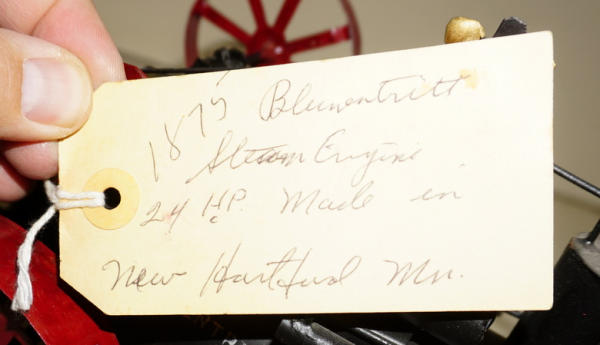 1875 Blumentritt
Steam Engine
24 H.P. Made in
New Hartford Mn.